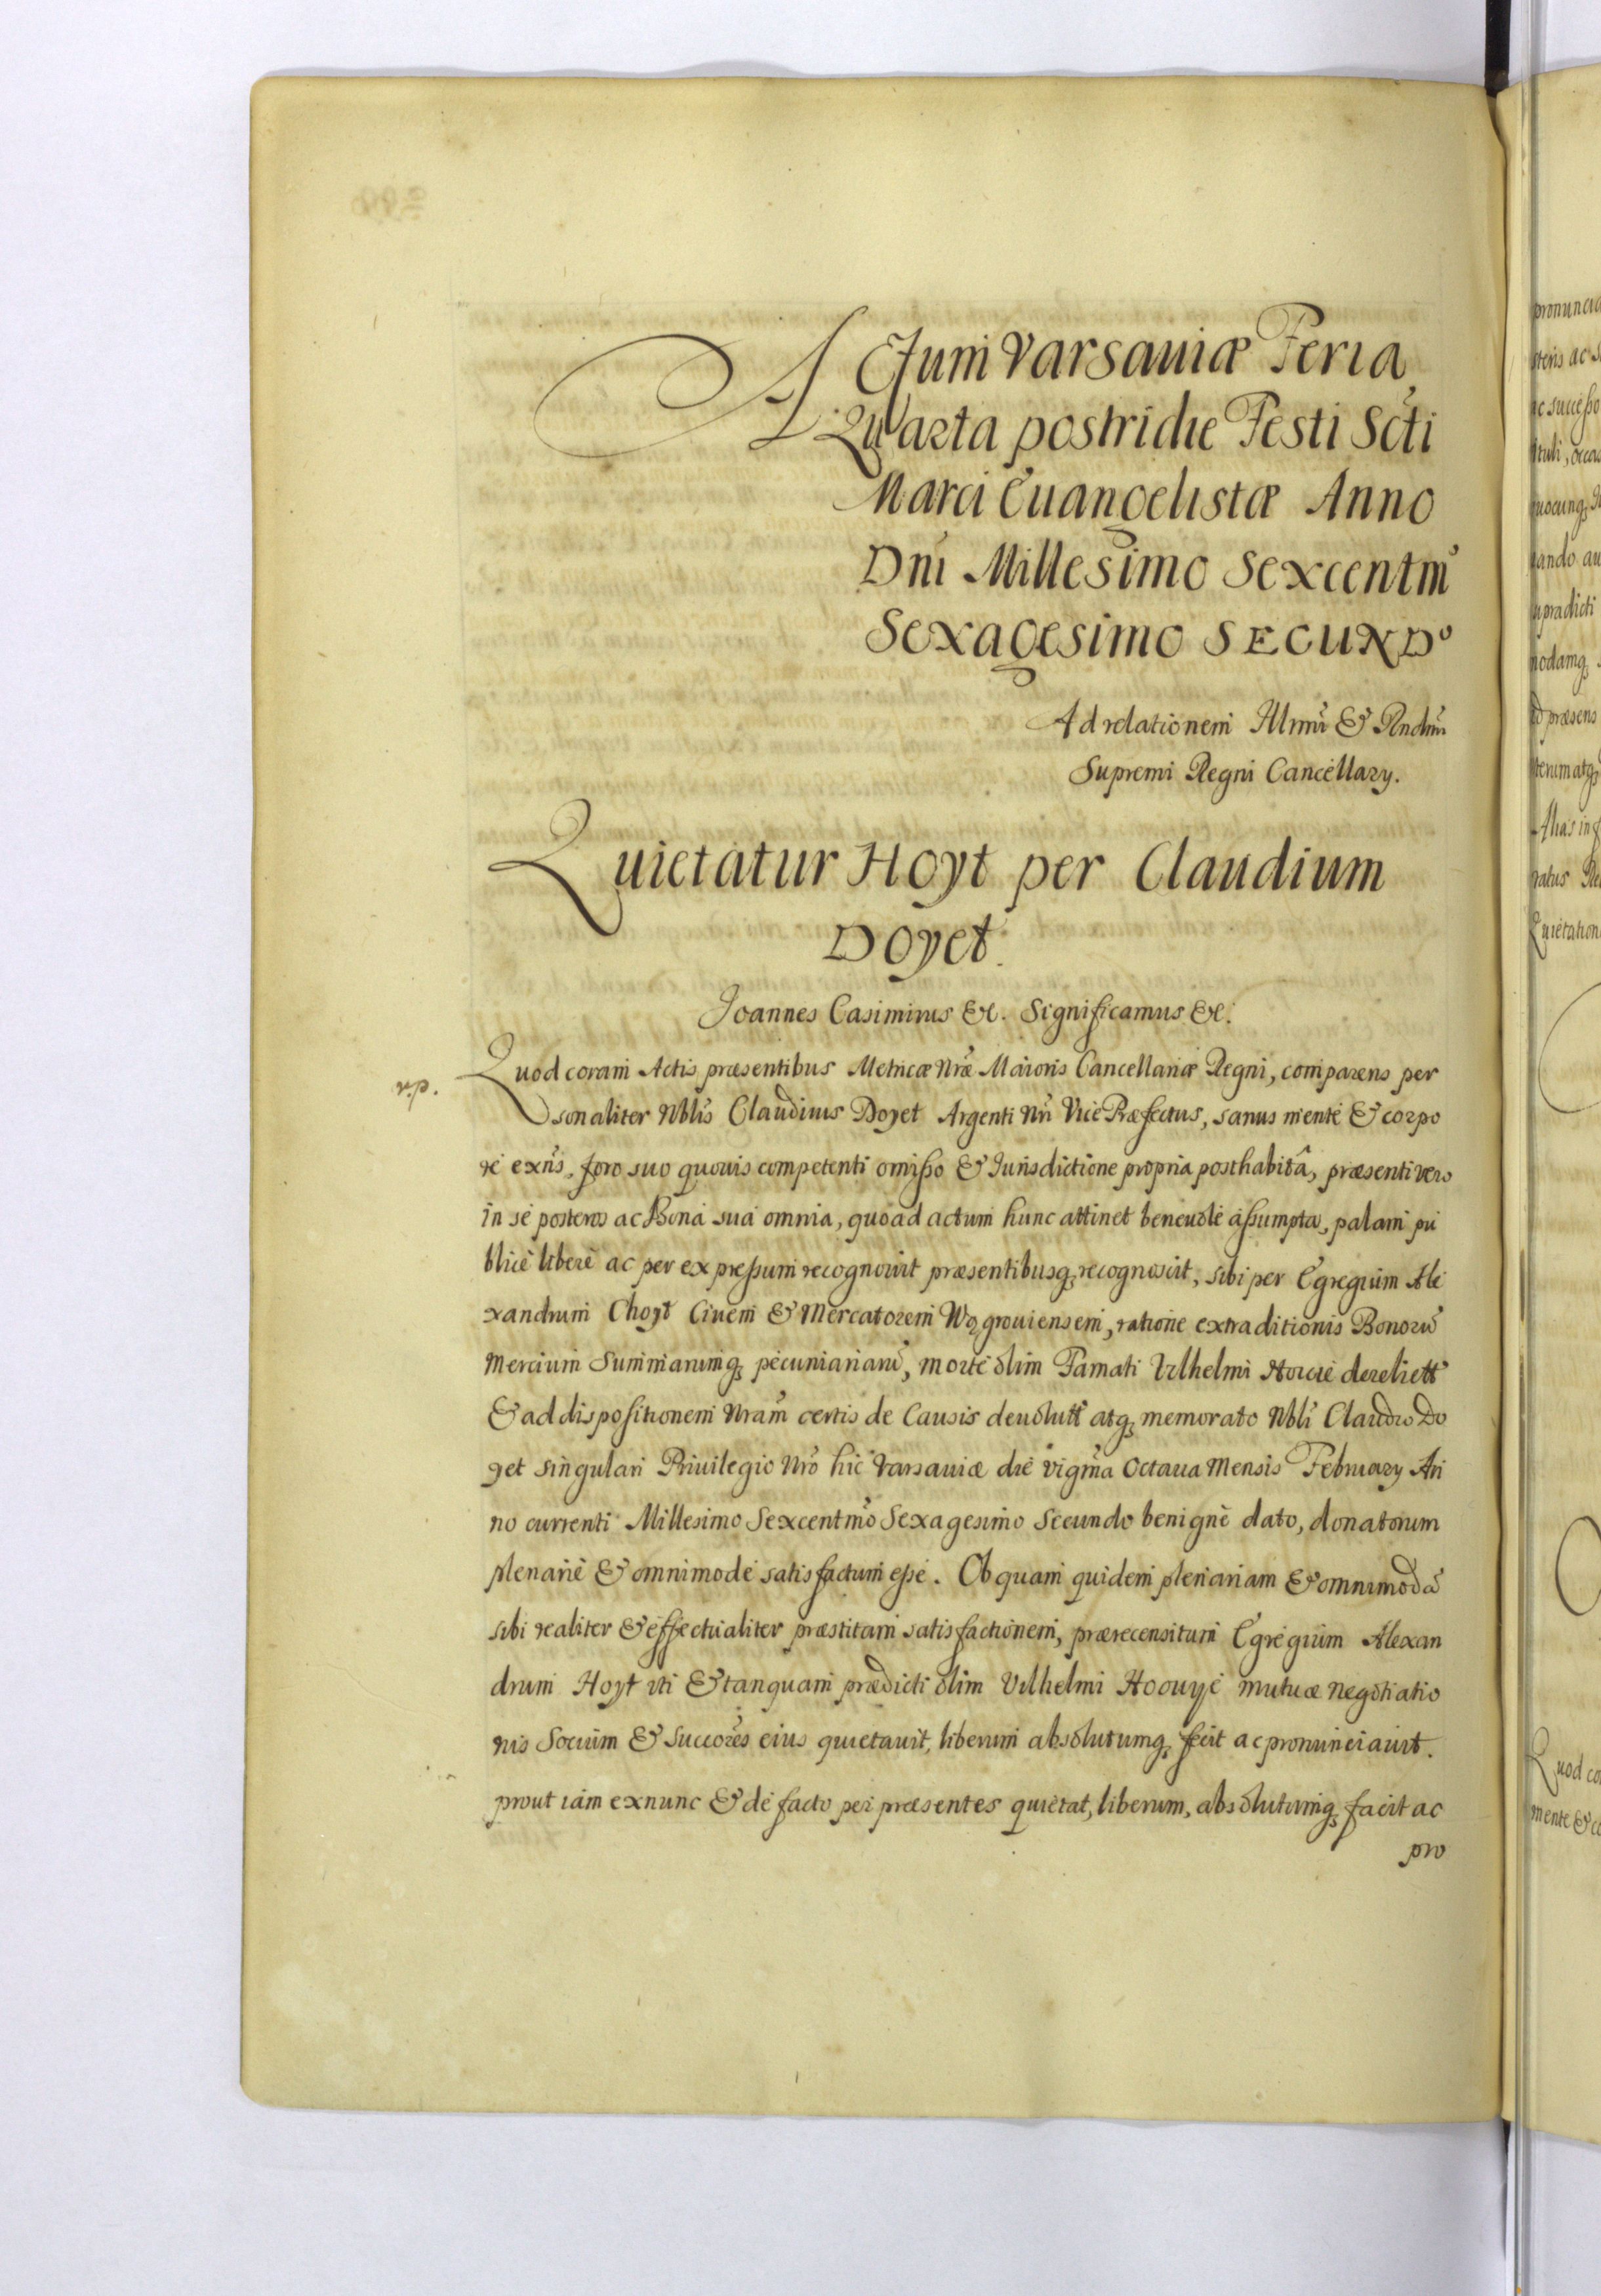 Actum Varsauiæ Feria
Quarta postridie Festi Scti
Marci Euangelistæ Anno
Dni Millesimo Sexcentmo
Sexagesimo SECUNDo
Ad relationem Illmi & Rndmi
Supremi Regni Cancellary.
Quietatur Hoyt per Claudium
Doyet.
Joannes Casimirus &c. Significamus &c.
Quod coram Actis præsentibus Metricæ Nræ Maioris Cancellariæ Regni, comparens per
sonaliter Nblis Claudius Doyet Argenti Nri Vice Præfectus, sanus mente & corpo
re exns, foro suo quouis competenti omisso & Jurisdictione propria posthabitâ, præsenti vero
in se posteros ac Bona sua omnia, quo ad actum hunc attinet beneuole assumpta, palam pu
blicè liberè ac per expressum recognouit præsentibusq recognoscit, sibi per Egregium Ale
xandrum Choyt Ciuem & Mercatorem Wągrouiensem, ratione extraditionis Bonorũ
Mercium Summarumq pecuniariarũ, morte olim Famati Vilhelmi Horcie derelictt
& ad dispositionem Nram certis de Causis deuolutt atq memorato Nbli Claudio Do
yet singulari Priuilegio Nro hic Varsauiæ die vigma Octaua Mensis February An
no currenti Millesimo Sexcentmo Sexagesimo Secundo benignè dato, donatorum
plenariè & omnimode satisfactum esse. Ob quam quidem plenariam & omnimodã
sibi realiter & effectualiter præstitam satisfactionem, prærecensitum Egregium Alexan
drum Hoyt uti & tanquam prædicti olim Vilhelmi Hoouyie mutuæ negotiatio
nis Socium & Succores eius quietauit, liberum absolutumq fecit ac pronunciauit.
prout iam exnunc & de facto per præsentes quietat, liberum, absolutumq facit ac
pro